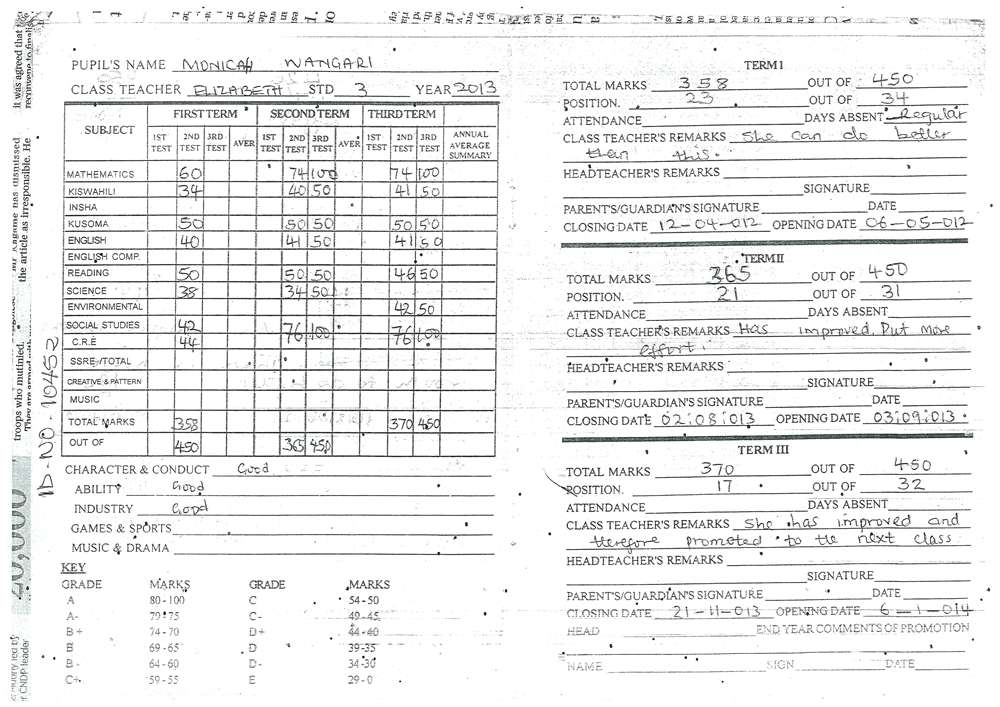 it was agreed that
reconvene to finalis
was dismissed
the article as irresponsible. He
troops who mutinied.
ID-NO-10452
40,000
mutiny led by
CNDP leader
PUPIL'S NAME MONICAH WANGARI
CLASS TEACHER ELIZABETH STD 3 YEAR 2013
SUBJECT FIRST TERM SECOND TERM THIRD TERM
1ST TEST 2ND TEST 3RD TEST AVER 1ST TEST 2ND TEST 3RD TEST AVER 1ST TEST 2ND TEST 3RD TEST ANNUAL AVERAGE SUMMARY
MATHEMATICS 60 74 100 74 100
KISWAHILI 34 40 50 41 50
INSHA
KUSOMA 50 50 50 50 50
ENGLISH 40 41 50 41 50
ENGLISH COMP.
READING 50 50 50 46 50
SCIENCE 38 34 50
ENVIRONMENTAL 42 50
SOCIAL STUDIES 42 76 100 76 100
C.R.E 44
SSRE/TOTAL
CREATIVE & PATTERN
MUSIC
TOTAL MARKS 358 370 450
OUT OF 450 365 450
CHARACTER & CONDUCT Good
ABILITY Good
INDUSTRY Good
GAMES & SPORTS
MUSIC & DRAMA
KEY
GRADE MARKS GRADE MARKS
A 80-100 C 54-50
A- 79-75 C- 49-45
B+ 74-70 D+ 44-40
B 69-65 D 39-35
B- 64-60 D- 34-30
C+ 59-55 E 29-0
TERM I
TOTAL MARKS 358 OUT OF 450
POSITION. 23 OUT OF 34
ATTENDANCE DAYS ABSENT Regular
CLASS TEACHER'S REMARKS She can do better
than this.
HEADTEACHER'S REMARKS
SIGNATURE
PARENT'S/GUARDIAN'S SIGNATURE DATE
CLOSING DATE 12-04-012 OPENING DATE 06-05-012
TERM II
TOTAL MARKS 365 OUT OF 450
POSITION. 21 OUT OF 31
ATTENDANCE DAYS ABSENT
CLASS TEACHER'S REMARKS Has improved. Put more
effort.
HEADTEACHER'S REMARKS
SIGNATURE
PARENT'S/GUARDIAN'S SIGNATURE DATE
CLOSING DATE 02:08:013 OPENING DATE 03:09:013
TERM III
TOTAL MARKS 370 OUT OF 450
POSITION. 17 OUT OF 32
ATTENDANCE DAYS ABSENT
CLASS TEACHER'S REMARKS She has improved and
therefore promoted to the next class
HEADTEACHER'S REMARKS
SIGNATURE
PARENT'S/GUARDIAN'S SIGNATURE DATE
CLOSING DATE 21-11-013 OPENING DATE 6-1-014
HEAD END YEAR COMMENTS OF PROMOTION
NAME SIGN DATE